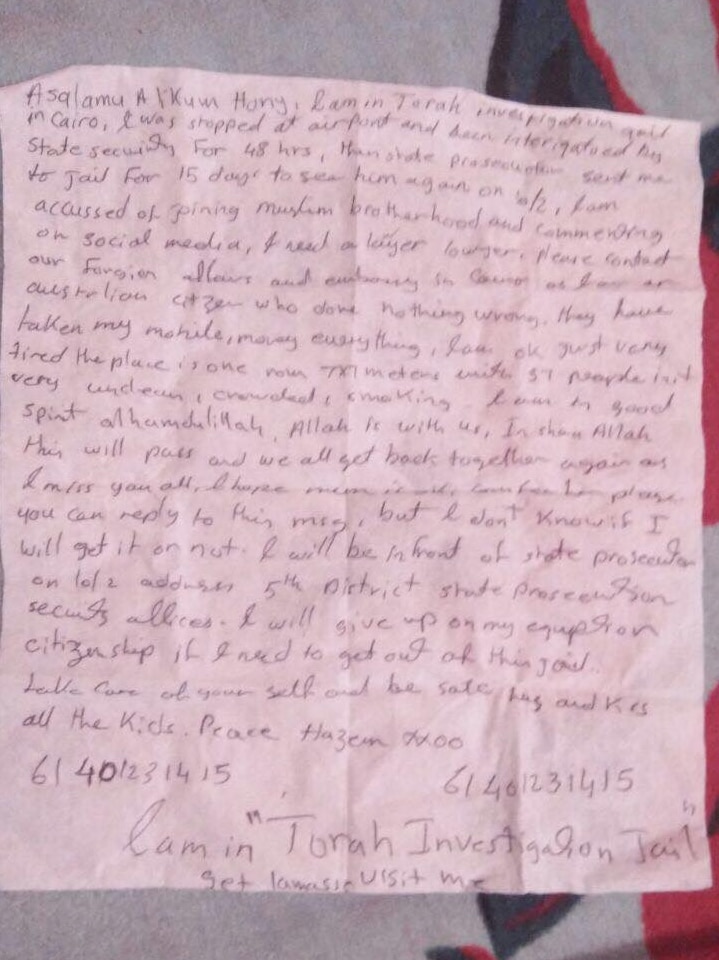 Asalamu Alkum Hony, I am in Torah investigation jail
in Cairo, I was stopped at airport and been interigatued by
state security For 48 hrs, than state prosecution sent me
to jail For 15 days to see him again on 10/2, I am
accussed of joining muslim brotherhood and commenting
on social media, I need a lawyer, Please contact
our Foregion affairs and embassy in Cairo as I am an
australian citizen who done nothing wrong, they have
taken my mobile, money everything, I am ok just very
tired the place is one room 7x7 meters with 57 people in it
very unclean, crowded, smoking. I am in good
spirit alhamdulillah, Allah is with us, In shaa Allah
this will pass and we all get back together again as
I miss you all, I hope mum is please
you can reply to this msg, but I don't Know if I
will get it or not. I will be infront of state prosecutor
on 10/2 address 5th District state prosecution
security offices. I will give up on my eguption
citizenship if I need to get out of this jail.
take care of your self and be safe hug and Kiss
all the Kids. Peace Hazem xxoo
61 401231415 61 401231415
I am in "Torah Investigation Jail"
get visit me